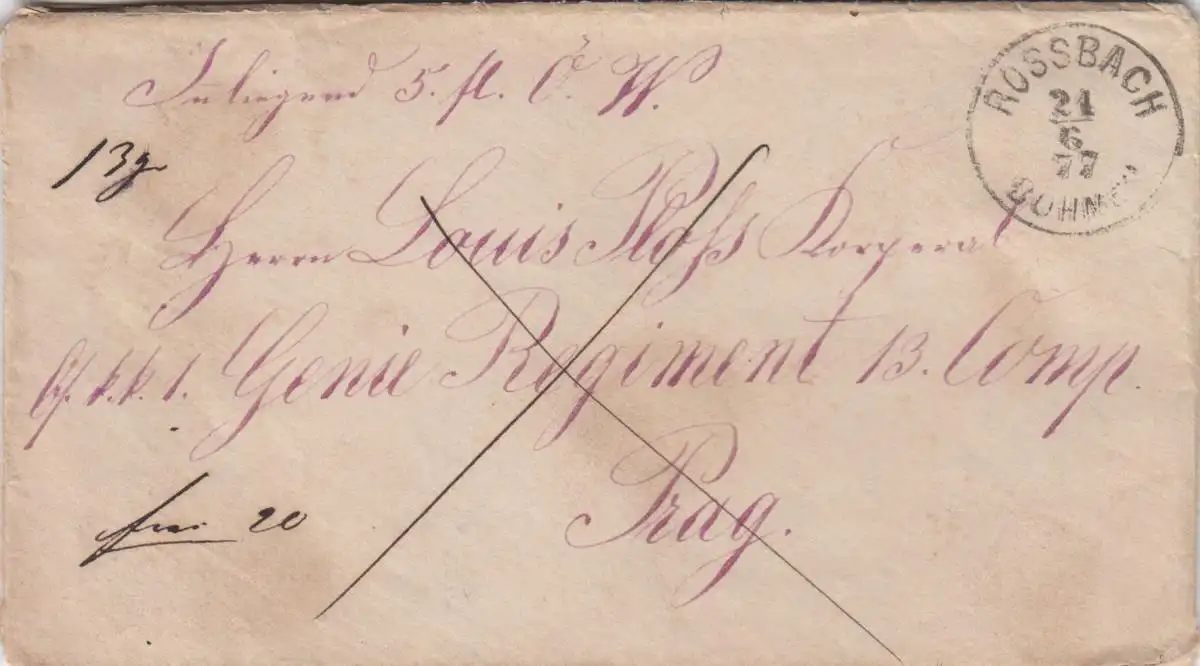 Inliegend 5. fl. Ö. W.
ROSSBACH
21
6
77
BÖHMEN
13 gr
Herrn Louis Ploss Korperal
k.k. 1. Genie Regiment 13. Comp.
frei 20
Prag.